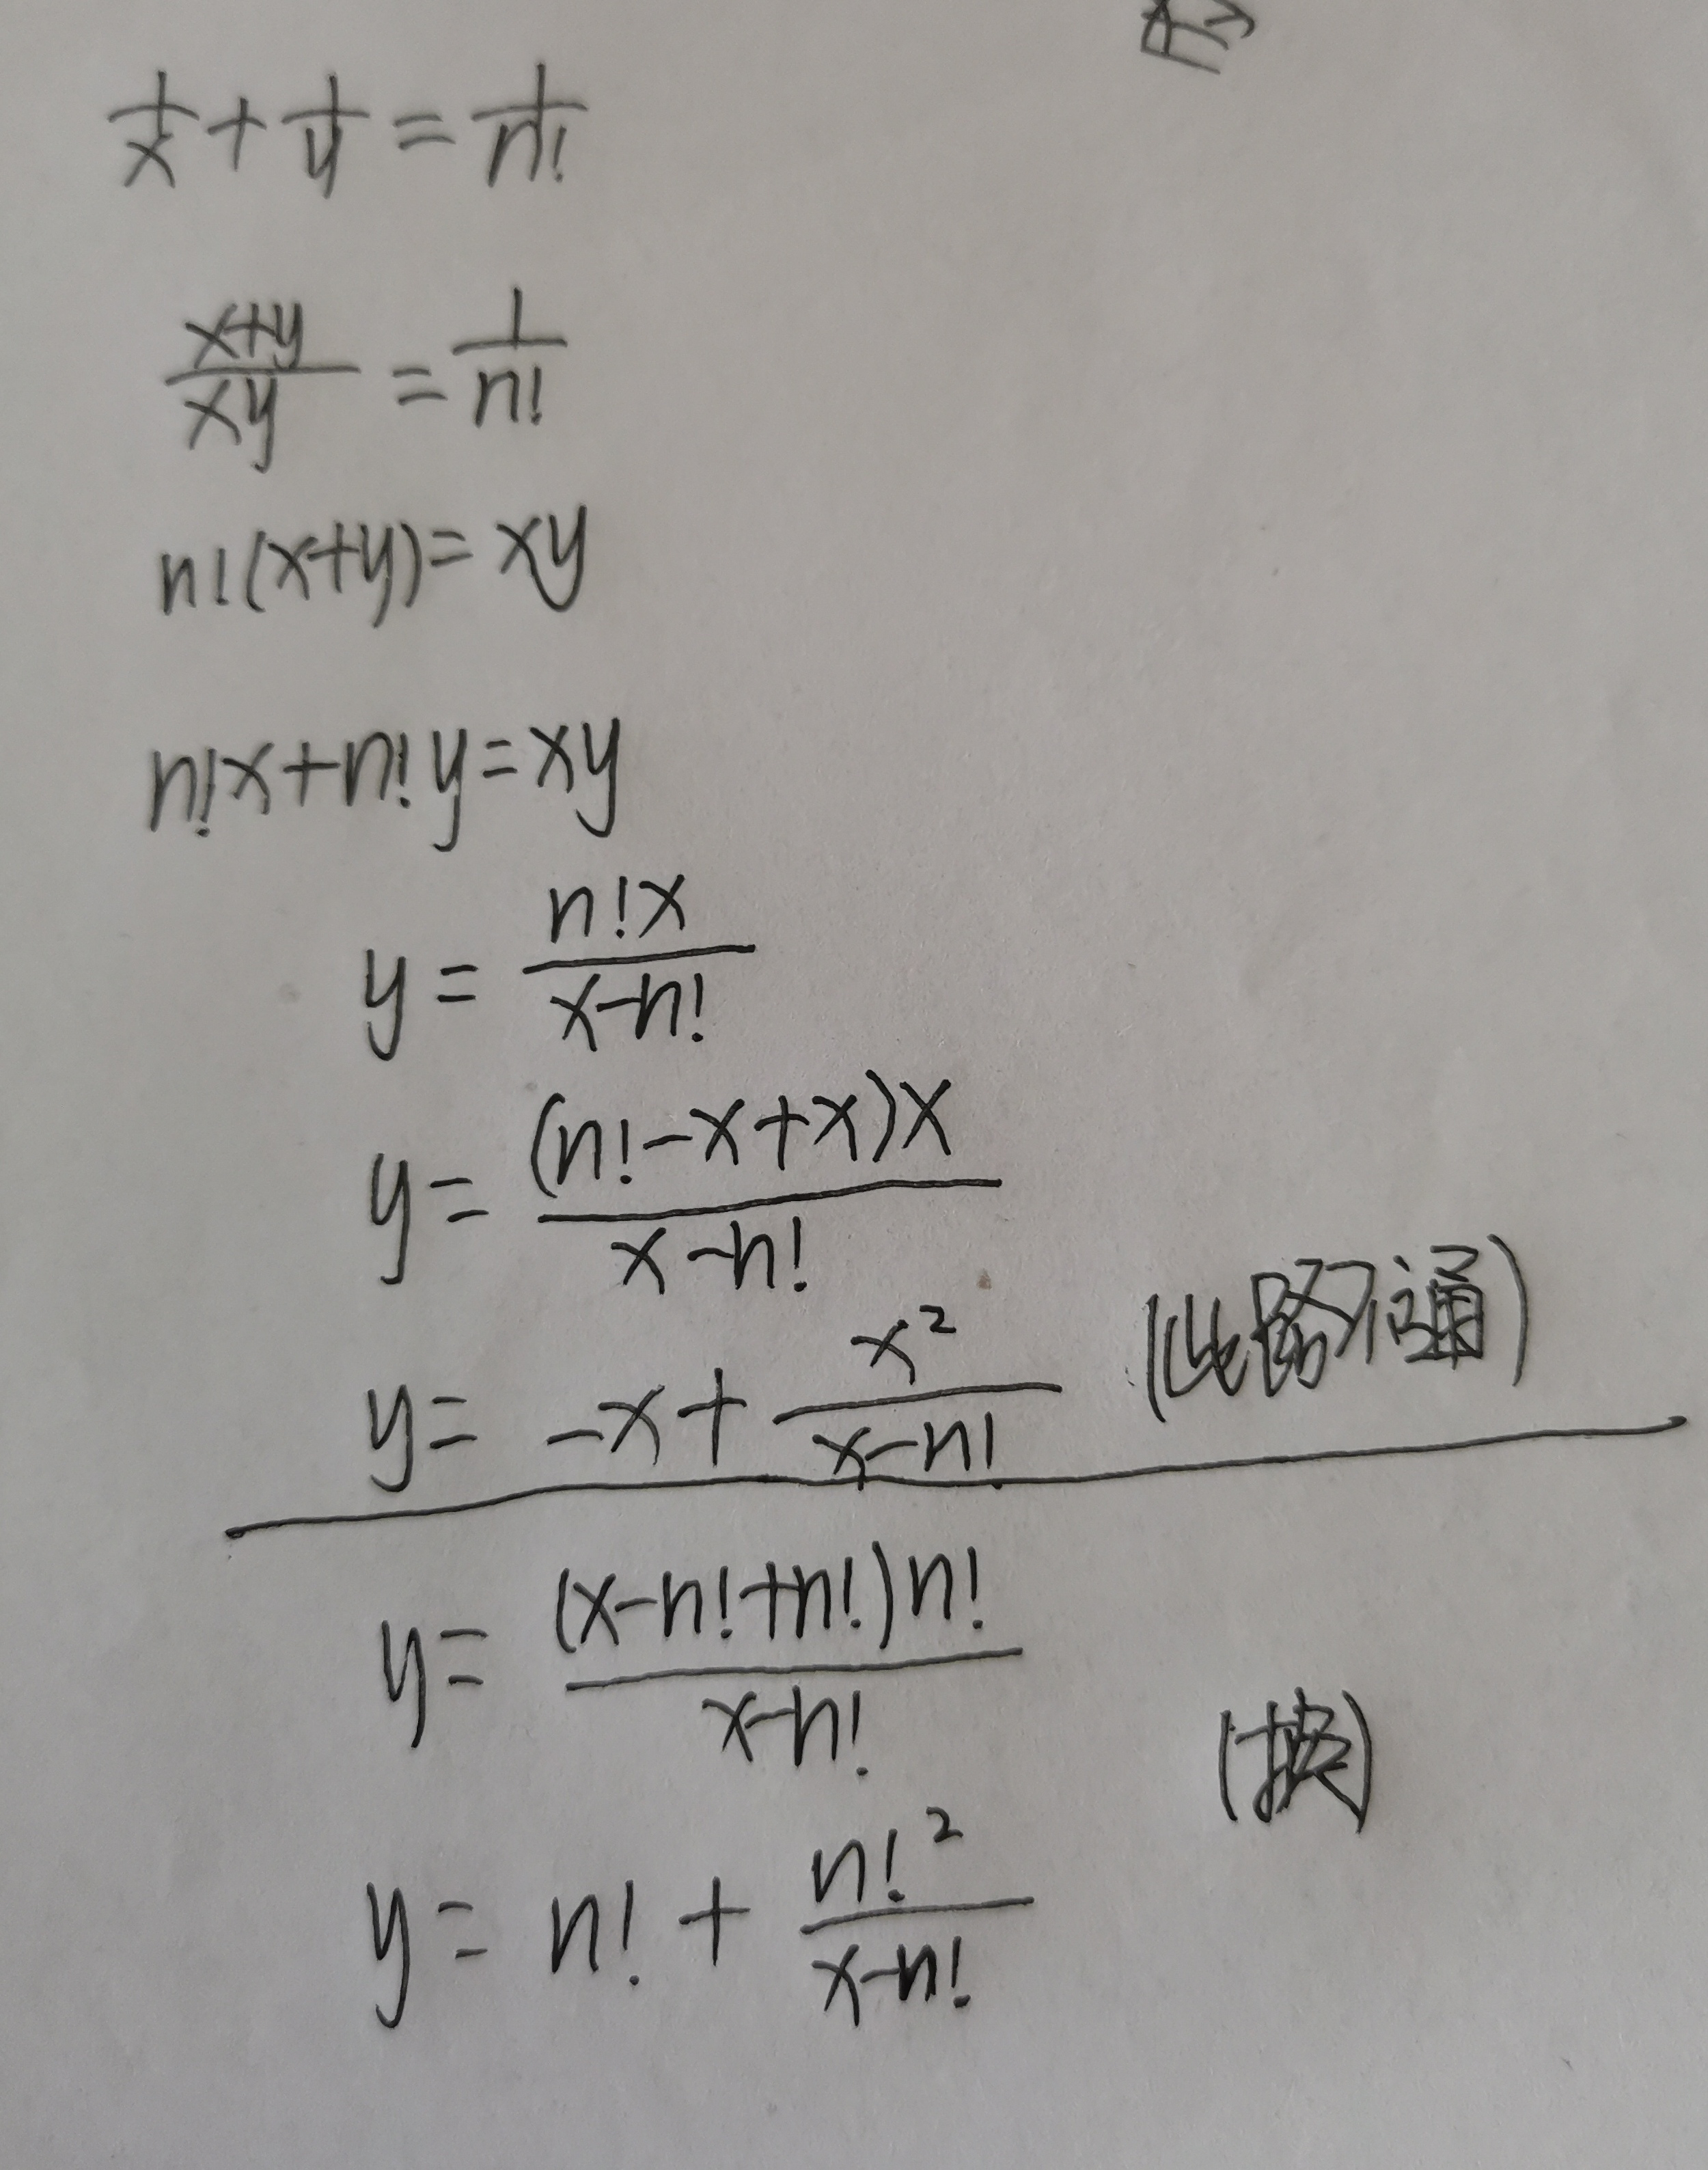 1/x + 1/y = 1/n!
x+y/xy = 1/n!
n!(x+y)=xy
n!x+n!y=xy
y = n!x/x-n!
y = (n!-x+x)x/x-n!
y = -x + x²/x-n! (此路不通)
y = (x-n!+n!)n!/x-n!
(换)
y = n! + n!²/x-n!